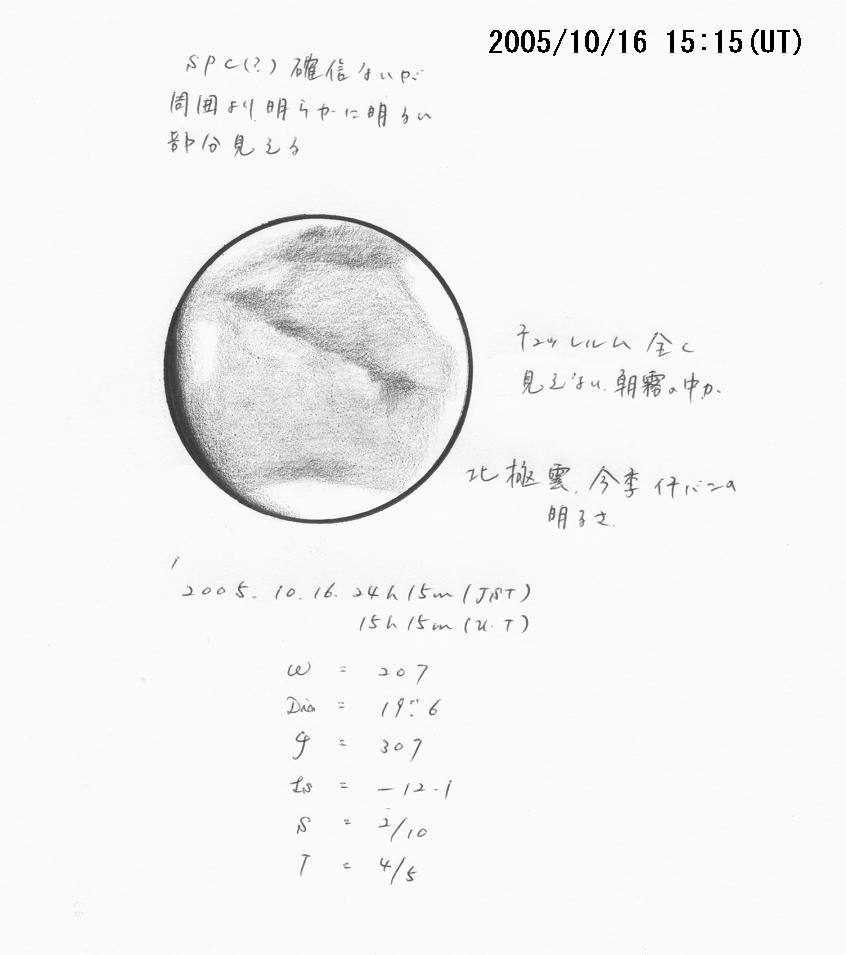 2005/10/16 15:15(UT)
SPC(?) 確信ないが
周囲より明らかに明るい
部分見える
チュッレルム 全く
見えない. 朝霧の中か.
北極雲. 今季イチバンの
明るさ.
2005. 10. 16. 24h 15m (JST)
15h 15m (U.T)
ω = 207
Dia = 19".6
= 307
= -12.1
S = 2/10
T = 4/5